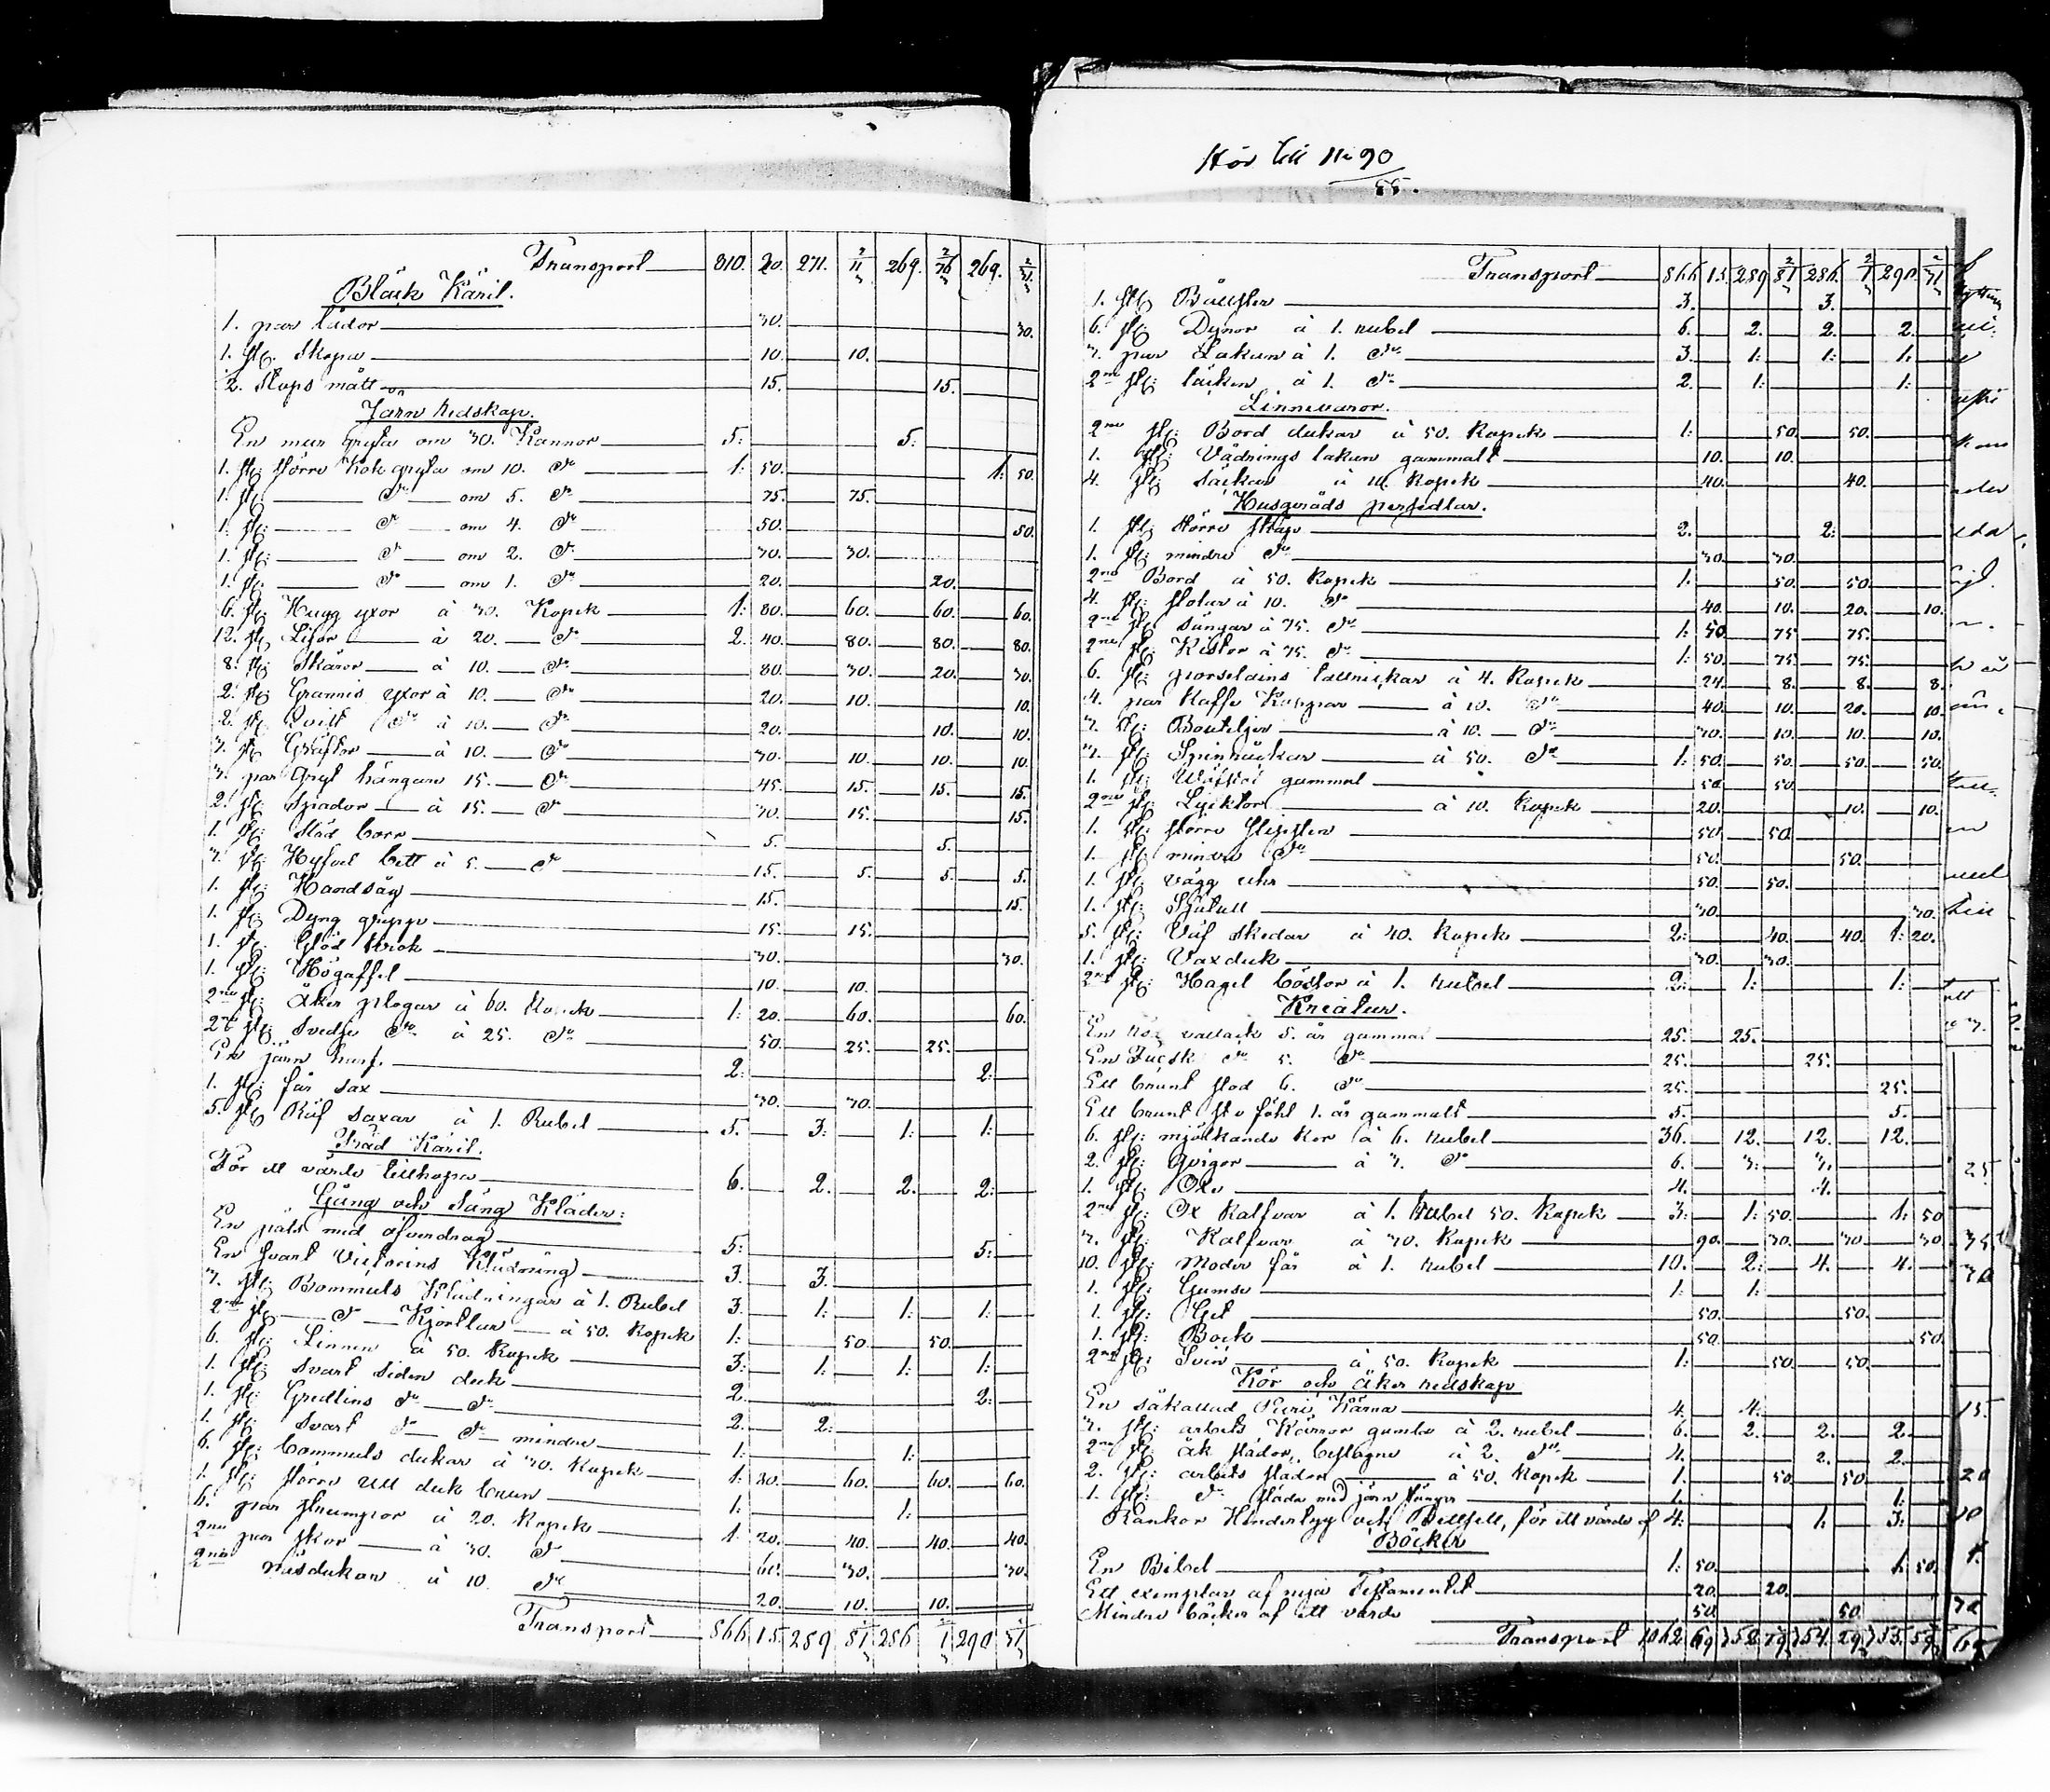 Transport 810. 20. 271. 2/11 269. 2/76 269. 2/31
Bläck Käril.
1. par lådor 30. 30.
1. st. Skopa 10. 10.
2. Stops mått 15. 15.
Järn redskap.
En mur gryta om 30. Kannor 5: 5:
1. st: större Kok gryta om 10. do 1: 50. 1: 50.
1. st do om 5. do 75. 75.
1. st: do om 4. do 50. 50.
1. st: do om 2. do 30. 30.
1. st do om 1. do 20. 20.
6. st Hugg yxor à 30. Kopek 1: 80. 60. 60. 60.
12. st Lijor à 20. do 2: 40. 80. 80. 80.
8. st: Skäror à 10. do 80. 30. 20. 30.
2. st: Grannis yxor à 10. do 20. 10. 10.
2. st do à 10. do 20. 10. 10.
3. st Gräftor à 10. do 30. 10. 10. 10.
3. par Gryt hängare 15. do 45. 15. 15. 15.
2. st: Spador à 15. do 30. 15. 15.
1. st: Städ borr 5. 5.
3. st: Hyfvel bett à 5. do 15. 5. 5. 5.
1. st: Handsåg 15. 15.
1. st: Dyng grepp 15. 15.
1. st: Glöd krok 30. 30.
1. st: Högaffel 10. 10.
2ne st: Åker plogar à 60. Kopek 1: 20. 60. 60.
2ne st: Svedje do à 25. do 50. 25. 25.
En järn harf. 2: 2:
1. st: får sax 30. 30.
5. st Räf saxar à 1. Rubel 5. 3: 1: 1:
Träd Käril.
För ett värde tillhopa 6. 2. 2. 2:
Gång och Säng Kläder:
En päls med öfverdrag 5: 5:
En svart Victorins Klädning 3. 3.
3. st: Bommuls Klädningar à 1. Rubel 3. 1: 1: 1:
2ne st: do Kjortlar à 50. Kopek 1: 50. 50.
6. st: Linnen à 50. Kopek 3: 1: 1: 1:
1. st: svart siden duk 2. 2:
1. st: Gredlins do do 2. 2:
1. st: Svart do do mindre 1: 1:
6. st: bommuls dukar à 30. Kopek 1: 80. 60. 60. 60.
1. st: större ull duk brun 1: 1:
6. par strumpor à 20. Kopek 1: 20. 40. 40. 40.
2ne par skor à 30. do 60. 30. 30.
2ne näsdukar à 10 do 20. 10. 10.
Transport 866 15. 289 81 286 1 290 31
Hör till No 90
55.
Transport 866 15. 289 2/81 286. 2/1 290. 2/31
1. st Bålster 3. 3.
6. st Dynor à 1. rubel 6. 2. 2. 2.
3. par Lakan à 1. do 3. 1: 1: 1:
2ne st: täcken à 1. do 2. 1: 1:
Linnevaror.
2ne st: Bord dukar à 50. Kopek 1: 50. 50.
1. st: Vädrings lakan gammalt 10. 10.
4. st: Säckar à 10. Kopek 40. 40.
Husgeråds persedlar.
1. st: större skåp 2. 2:
1. st: mindre do 30. 30.
2ne Bord à 50. Kopek 1: 50. 50.
4. st: stolar à 10. do 40. 10. 20. 10.
2ne st sängar à 75. do 1: 50. 75. 75.
2ne st Kistor à 75. do 1: 50. 75. 75.
6. st: porselains tallrickar à 4. Kopek 24. 8. 8. 8.
4. par Kaffe Koppar à 10. do 40. 10. 20. 10.
3. st: Bouteljer à 10. do 30. 10. 10. 10.
3. st: Spinråckar à 50. do 1: 50. 50. 50. 50.
1. st: gammal 50. 50.
2ne st: Lycktor à 10 Kopek 20. 10. 10.
1. st: större 50. 50.
1. st: mindre do 50. 50.
1. st: vägg uhr 50. 50.
1. st: 30. 30.
5. st: Väf skedar à 40. Kopek 2: 40. 40. 1: 20.
1. st: Vaxduk 30. 30.
2ne st: Hagel bössor à 1. rubel 2: 1: 1:
Kreatur.
En vallack 5. år gammal 25. 25.
En do 5. do 25. 25.
Ett brunt stod 6. do 25. 25.
Ett brunt sto föhl 1. år gammalt 5. 5.
6. st: mjölkande Kor à 6. rubel 36. 12. 12. 12.
2. st: Qvigor à 3. do 6. 3: 3.
1. st: Oxe 4. 4.
2ne st: Ox Kalfvar à 1. Rubel 50. Kopek 3: 1: 50. 1: 50
3. st: Kalfvar à 30. Kopek 90. 30. 30 30
10. st: Moder får à 1. rubel 10. 2: 4. 4.
1. st: Gumse 1: 1:
1. st: Get 50. 50.
1. st: Bock 50. 50.
2ne st: Svin à 50. Kopek 1: 50. 50.
Kör och åker redskap
En såkallad Kärra 4. 4.
3. st: arbets Kärror gamla à 2. rubel 6. 2. 2. 2.
2ne st: åk slädor, beslagne à 2. do 4. 2. 2.
2. st: arbets slädor à 50. Kopek 1. 50. 50.
1. st: do släde med järn stänger 1. 1:
Rankor Hinderlyg och för ett värde af 4: 1: 3:
Böcker
En Bibel 1: 50. 1: 50.
Ett exemplar af nya Testamentet 20. 20.
Mindre böcker af ett värde 50 50
Transport 1062 69 352 79 354. 29 355. 59